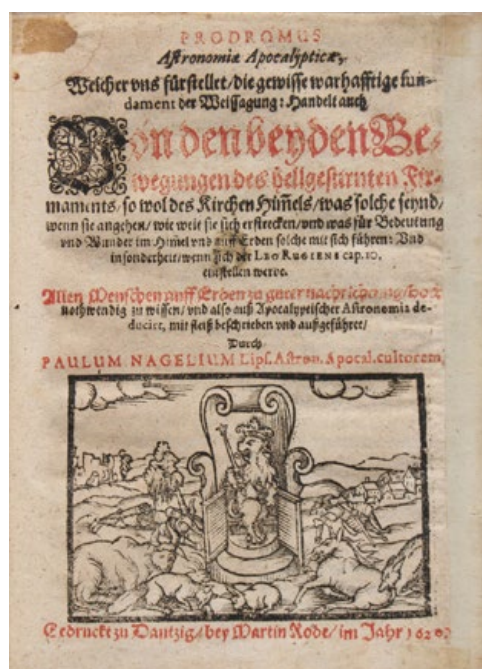 PRODROMUS
Astronomiæ Apocalypticæ,
Welcher vns fürstellet/die gewisse warhafftige fun-
dament der Weissagung: Handelt auch
Von den beyden Be-
wegungen des hellgestirnten Fir-
maments/so wol des Kirchen Him̃els/was solche seynd/
wenn sie angehen/wie weit sie sich erstrecken/vnd was für Bedeutung
vnd Wunder im Him̃el vnd auff Erden solche mit sich führen: Vnd
in sonderheit/wenn sich der LEO RUGIENS cap. 10.
einstellen werde.
Allen Menschen auff Erden zu guter nachrichtung/
nothwendig zu wissen/vnd also auß Apocalyptischer Astronomia de-
duciret, mit fleiß beschrieben vnd außgeführet/
Durch
PAULUM NAGELIUM Lips. Astron. Apocal. cultorem
Gedruckt zu Dantzig/bey Martin Rode/im Jahr 1620